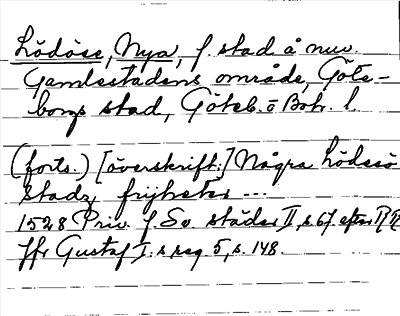 Lödöse, Nya, f. stad å nuv.
Gamlestadens område, Göte-
borgs stad, Göteb. o Boh. l.
(forts.) [överskrift:] Några Lödesö
Stadz frijheter ---
1528 Priv. f. Sv. städer II, s. 67. efter RR
jfr Gustaf I:s reg. 5, s. 148.